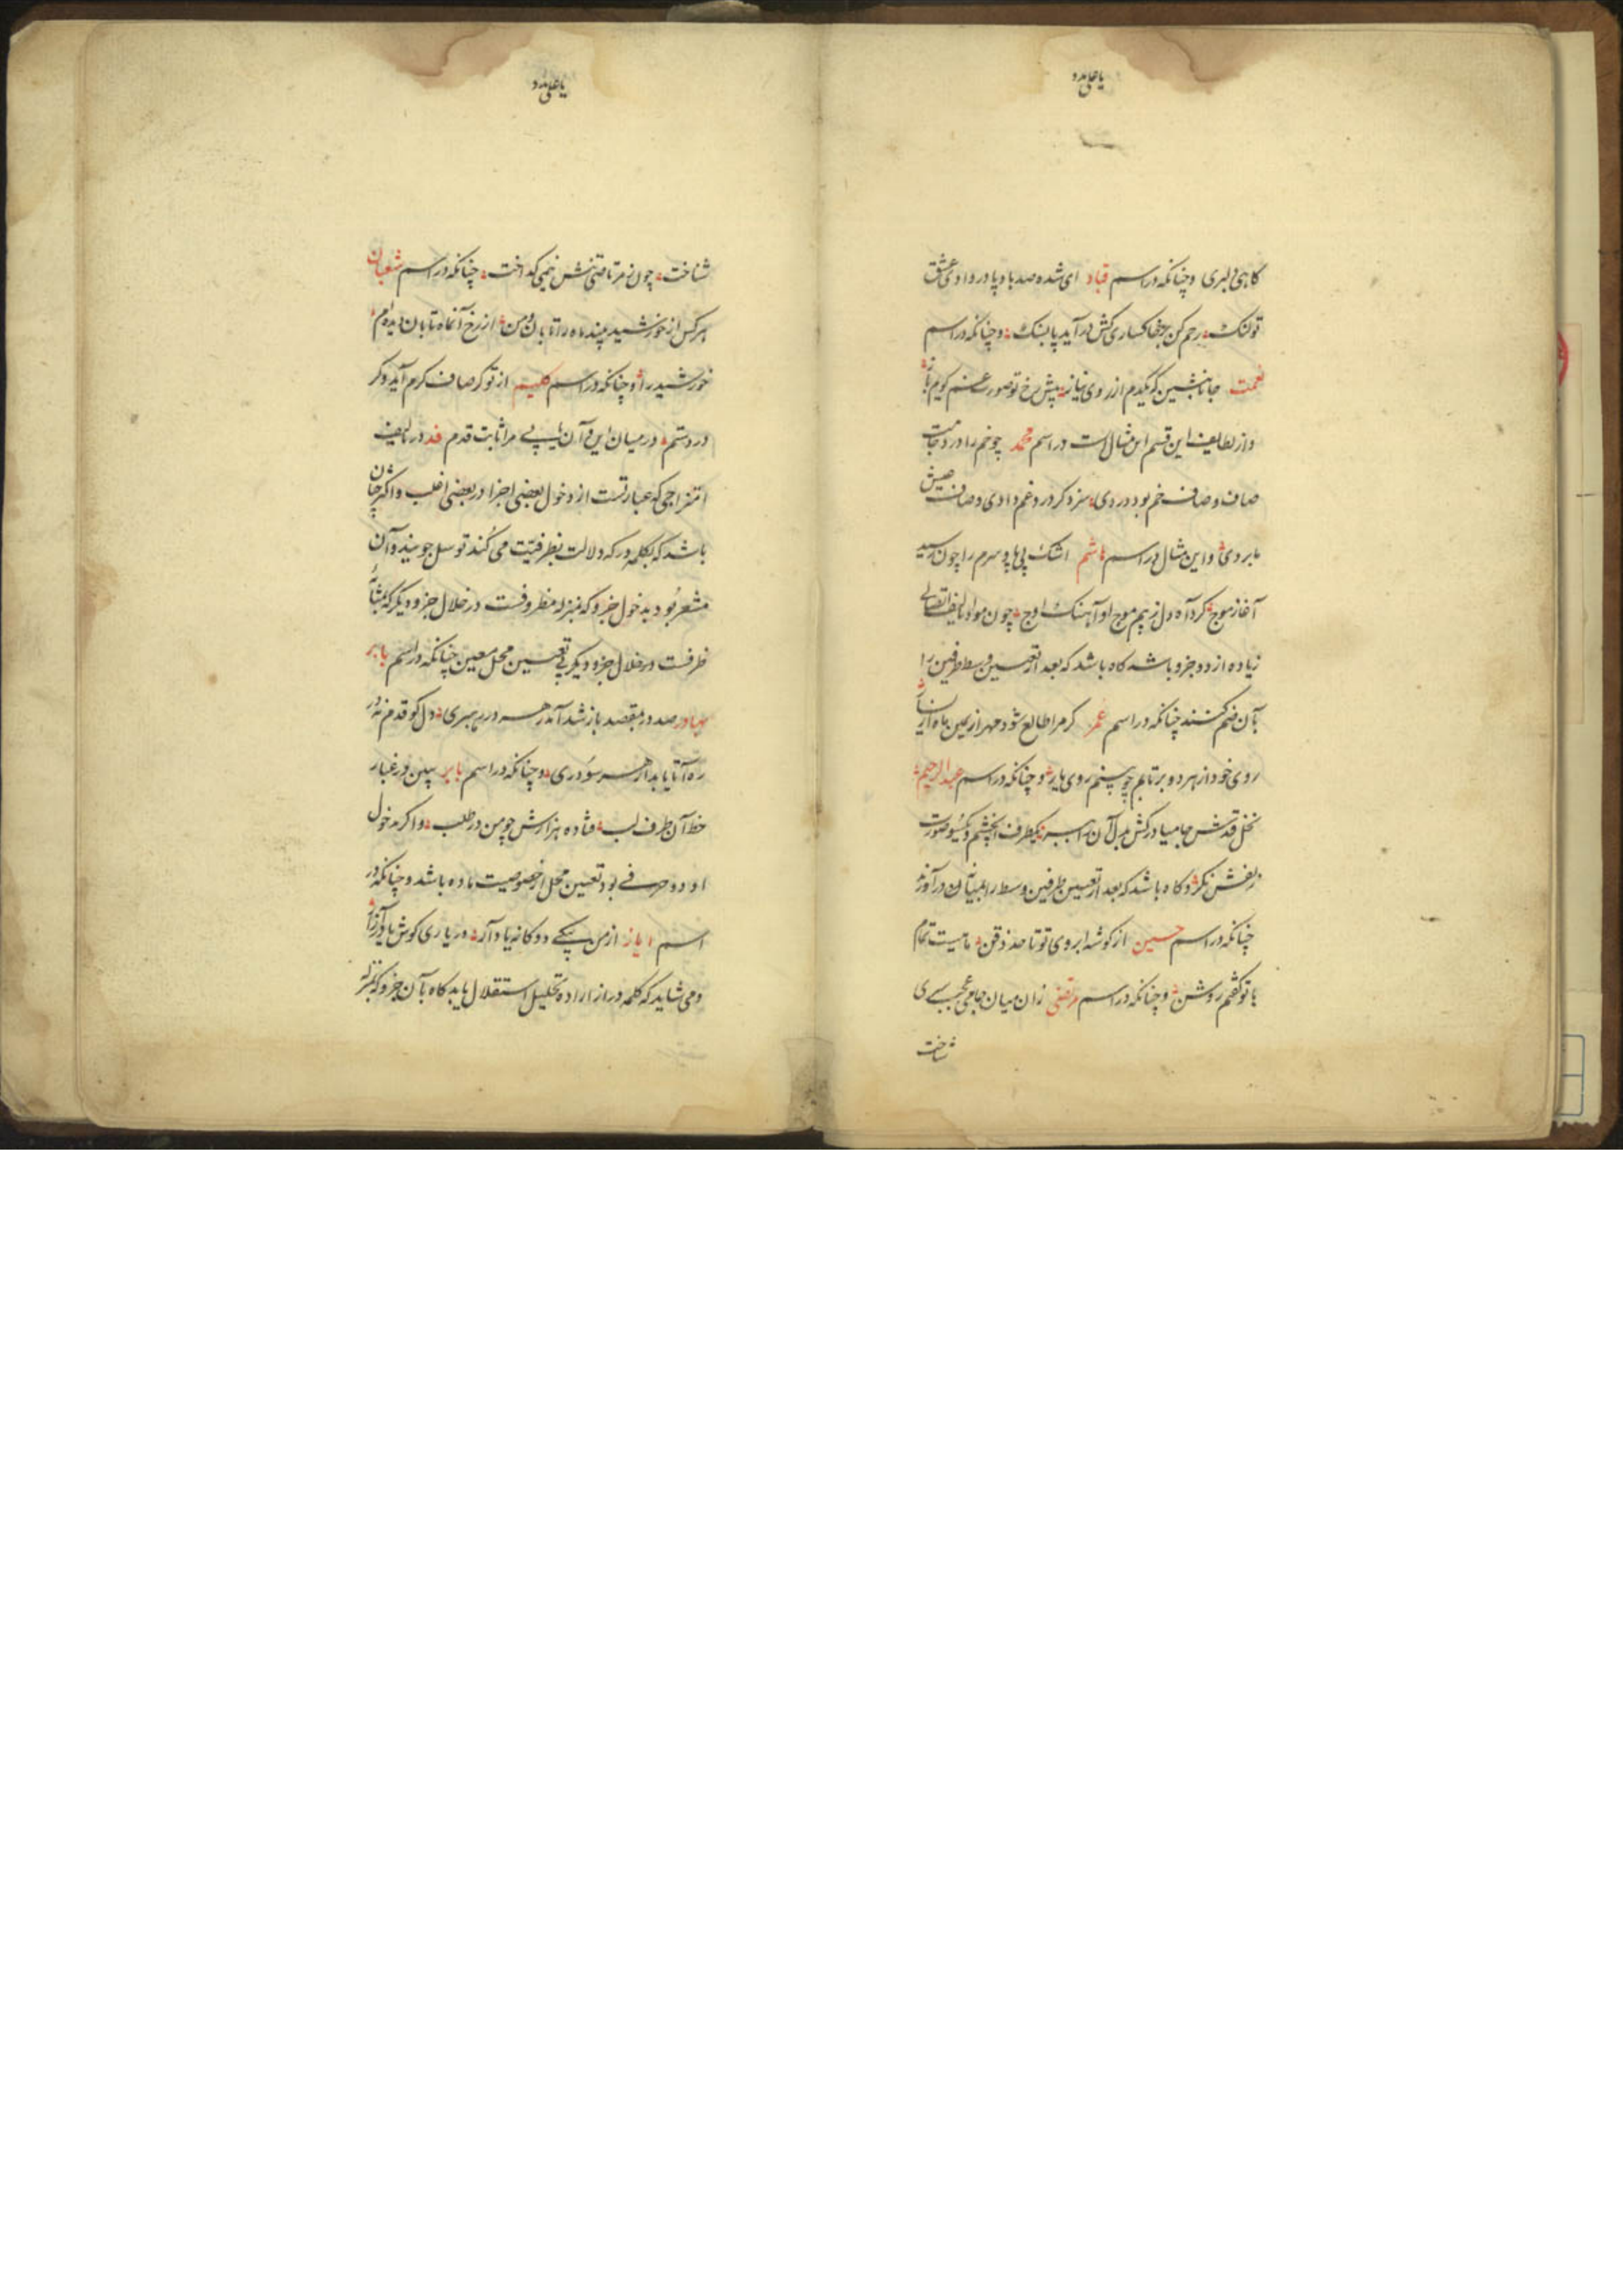 یا علی مدد
کاهی دلبری وچنانکه در اسم قباد ای شده صد باد پا در وادی عشق
تو لنک رحم کن بر خاکساری کش در آید پا بسنک وچنانکه در اسم
نعمت جانا بنشین که یکدم از روی نیاز پیش رخ تو صورت غم کویم باز
واز لطایف این قسم این مثال است در اسم محمد چو خم را درد
صاف وصاف خم بود دردی سزد کر درد غم دادی وصاف
ما بردی واین مثال در اسم هاشم اشک بی پا وسرم را چون رسید
آغاز موج کرد آه دل ز بیم موج او آهنک اوج چون مواد تالیف اتصالی
زیاده از دو جزو باشد کاه باشد که بعد از تعیین وسط طرفین را
بآن ضم کنند چنانکه در اسم عمر کر مرا طالع شود مهر از یمین ماه از یسار
روی خود از هر دو بر تابم چو بینم روی یار وچنانکه در اسم عبد الرحیم
نخل قدش
زلفش نکر وکاه باشد که بعد از تعیین طرفین وسط را بمیان در آورند
چنانکه در اسم حسین از کوشه ابروی تو تا حد ذقن ماهیت تمام
با تو کفتم روشن وچنانکه در اسم مرتضی زان میان جامی عجب
شناخت
یا علی مدد
شناخت چون ز مرتاضی تنش نیمی کداخت چنانکه در اسم شعبان
هرکس از خورشید بیند ماه را تابان ومن از رخ آنماه تابان دیده ام
خورشید را وچنانکه در اسم کلیم از تو کر صاف کرم آید وکر
درد ستم در میان این وآن یابی مرا ثابت قدم قد در تالیف
امتزاجی که عبارتست از دخول بعضی اجزا در بعضی اغلب واکثر چنان
باشد که بکلمه در که دلالت بظرفیت می کند توسل جویند وآن
مشعر بود بدخول جزو که بمنزله مظروفست در خلال جزو دیکر که بمثابه
ظرفست در خلال جزو دیکر بی تعیین محل معین چنانکه در اسم بابر
بهادر صد در مقصد باز شد آندر هر در رهبری دل کو قدم نه در
ره آ تا یابد از هر سو دری وچنانکه در اسم بابر ببین در غبار
خط آن طرف لب فتاده هزارش چو من در طلب واکر مدخول
او دو حرفی بود تعیین محل از خصوصیت ماده باشد وچنانکه در
اسم ایاز از من یکی دو کانه یاد آر در یاری کوش
ومی شاید که کلمه در از اراده تحلیل استقلال یابد کاه بآن جزو که بمنزله